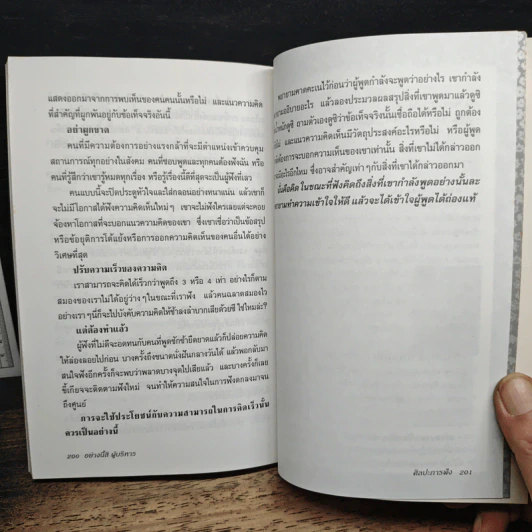 แสดงออกมาจากการพบเห็นของคนคนนั้นหรือไม่ และแนวความคิด
ที่สำคัญที่ผูกพันอยู่กับข้อเท็จจริงอันนี้
อย่าผูกขาด
คนที่มีความต้องการอย่างแรงกล้าที่จะมีตำแหน่งเข้าควบคุม
สถานการณ์ทุกอย่างในสังคม คนที่ชอบพูดและทุกคนต้องฟังฉัน หรือ
คนที่รู้สึกว่าเขารู้หมดทุกเรื่อง หรือรู้เรื่องนี้ดีที่สุดจะเป็นผู้ฟังที่เลว
คนแบบนี้จะปิดประตูหัวใจและใส่กลอนอย่างหนาแน่น แล้วเขาก็
จะไม่มีโอกาสได้ฟังความคิดเห็นใหม่ๆ เขาจะไม่ฟังใครเลยแต่จะคอย
จ้องหาโอกาสที่จะบอกแนวความคิดของเขา ซึ่งเขาเชื่อว่าเป็นข้อสรุป
หรือข้อยุติการโต้แย้งหรือการออกความคิดเห็นของคนอื่นได้อย่าง
วิเศษที่สุด
ปรับความเร็วของความคิด
เราสามารถจะคิดได้เร็วกว่าพูดถึง 3 หรือ 4 เท่า อย่างไรก็ตาม
สมองของเราไม่ได้อยู่ว่างๆ ในขณะที่เราฟัง แล้วคนฉลาดสมองไว
อย่างเราๆ นี้ก็จะไปบังคับความคิดให้ช้าลงลำบากเสียด้วยซี ใช่ไหมล่ะ?
แต่ต้องทำแล้ว
ผู้ฟังที่ไม่ดีจะอดทนกับคนที่พูดชักช้ายืดยาดแล้วก็ปล่อยความคิด
ให้ล่องลอยไปก่อน บางครั้งถึงขนาดนั่งฝันกลางวันได้ แล้วพอกลับมา
สนใจฟังอีกครั้งก็จะพบว่าพลาดบางจุดไปเสียแล้ว และบางครั้งก็เลย
ขี้เกียจจะติดตามฟังใหม่ จนทำให้ความสนใจในการฟังตกลงมาจน
ถึงศูนย์
การจะใช้ประโยชน์กับความสามารถในการคิดเร็วนั้น
ควรเป็นอย่างนี้
200 อย่างนี้สิ ผู้บริหาร
พยายามคาดคะเนไว้ก่อนว่าผู้พูดกำลังจะพูดว่าอย่างไร เขากำลัง
อธิบายอะไร แล้วลองประมวลผลสรุปสิ่งที่เขาพูดมาแล้วดูซิ
น้ำหนักดูซิ ถามตัวเองดูซิว่าข้อเท็จจริงนั้นเชื่อถือได้หรือไม่ ถูกต้อง
ไม่ และแนวความคิดเห็นมีวัตถุประสงค์อะไรหรือไม่ หรือผู้พูด
ต้องการจะบอกความเห็นของเขาเท่านั้น สิ่งที่เขาไม่ได้กล่าวออก
อะไรอีกไหม ซึ่งอาจสำคัญเท่าๆ กับสิ่งที่เขาได้กล่าวออกมา
คือคิด ในขณะที่ฟังคิดถึงสิ่งที่เขากำลังพูดอย่างนั้นละ
ทำความเข้าใจให้ดี แล้วจะได้เข้าใจผู้พูดได้ถ่องแท้
ศิลปะการฟัง 201